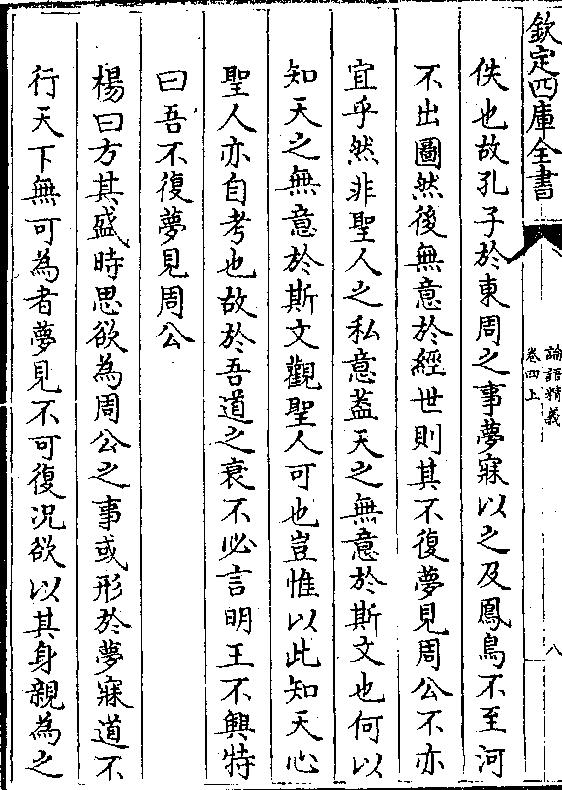 欽定四庫全書
論語精義
卷四上
八
佚也故孔子於東周之事夢寐以之及鳳鳥不至河
不出圖然後無意於經世則其不復夢見周公不亦
宜乎然非聖人之私意蓋天之無意於斯文也何以
知天之無意於斯文觀聖人可也豈惟以此知天心
聖人亦自考也故於吾道之衰不必言明王不興特
曰吾不復夢見周公
楊曰方其盛時思欲為周公之事或形於夢寐道不
行天下無可為者夢見不可復况欲以其身親為之